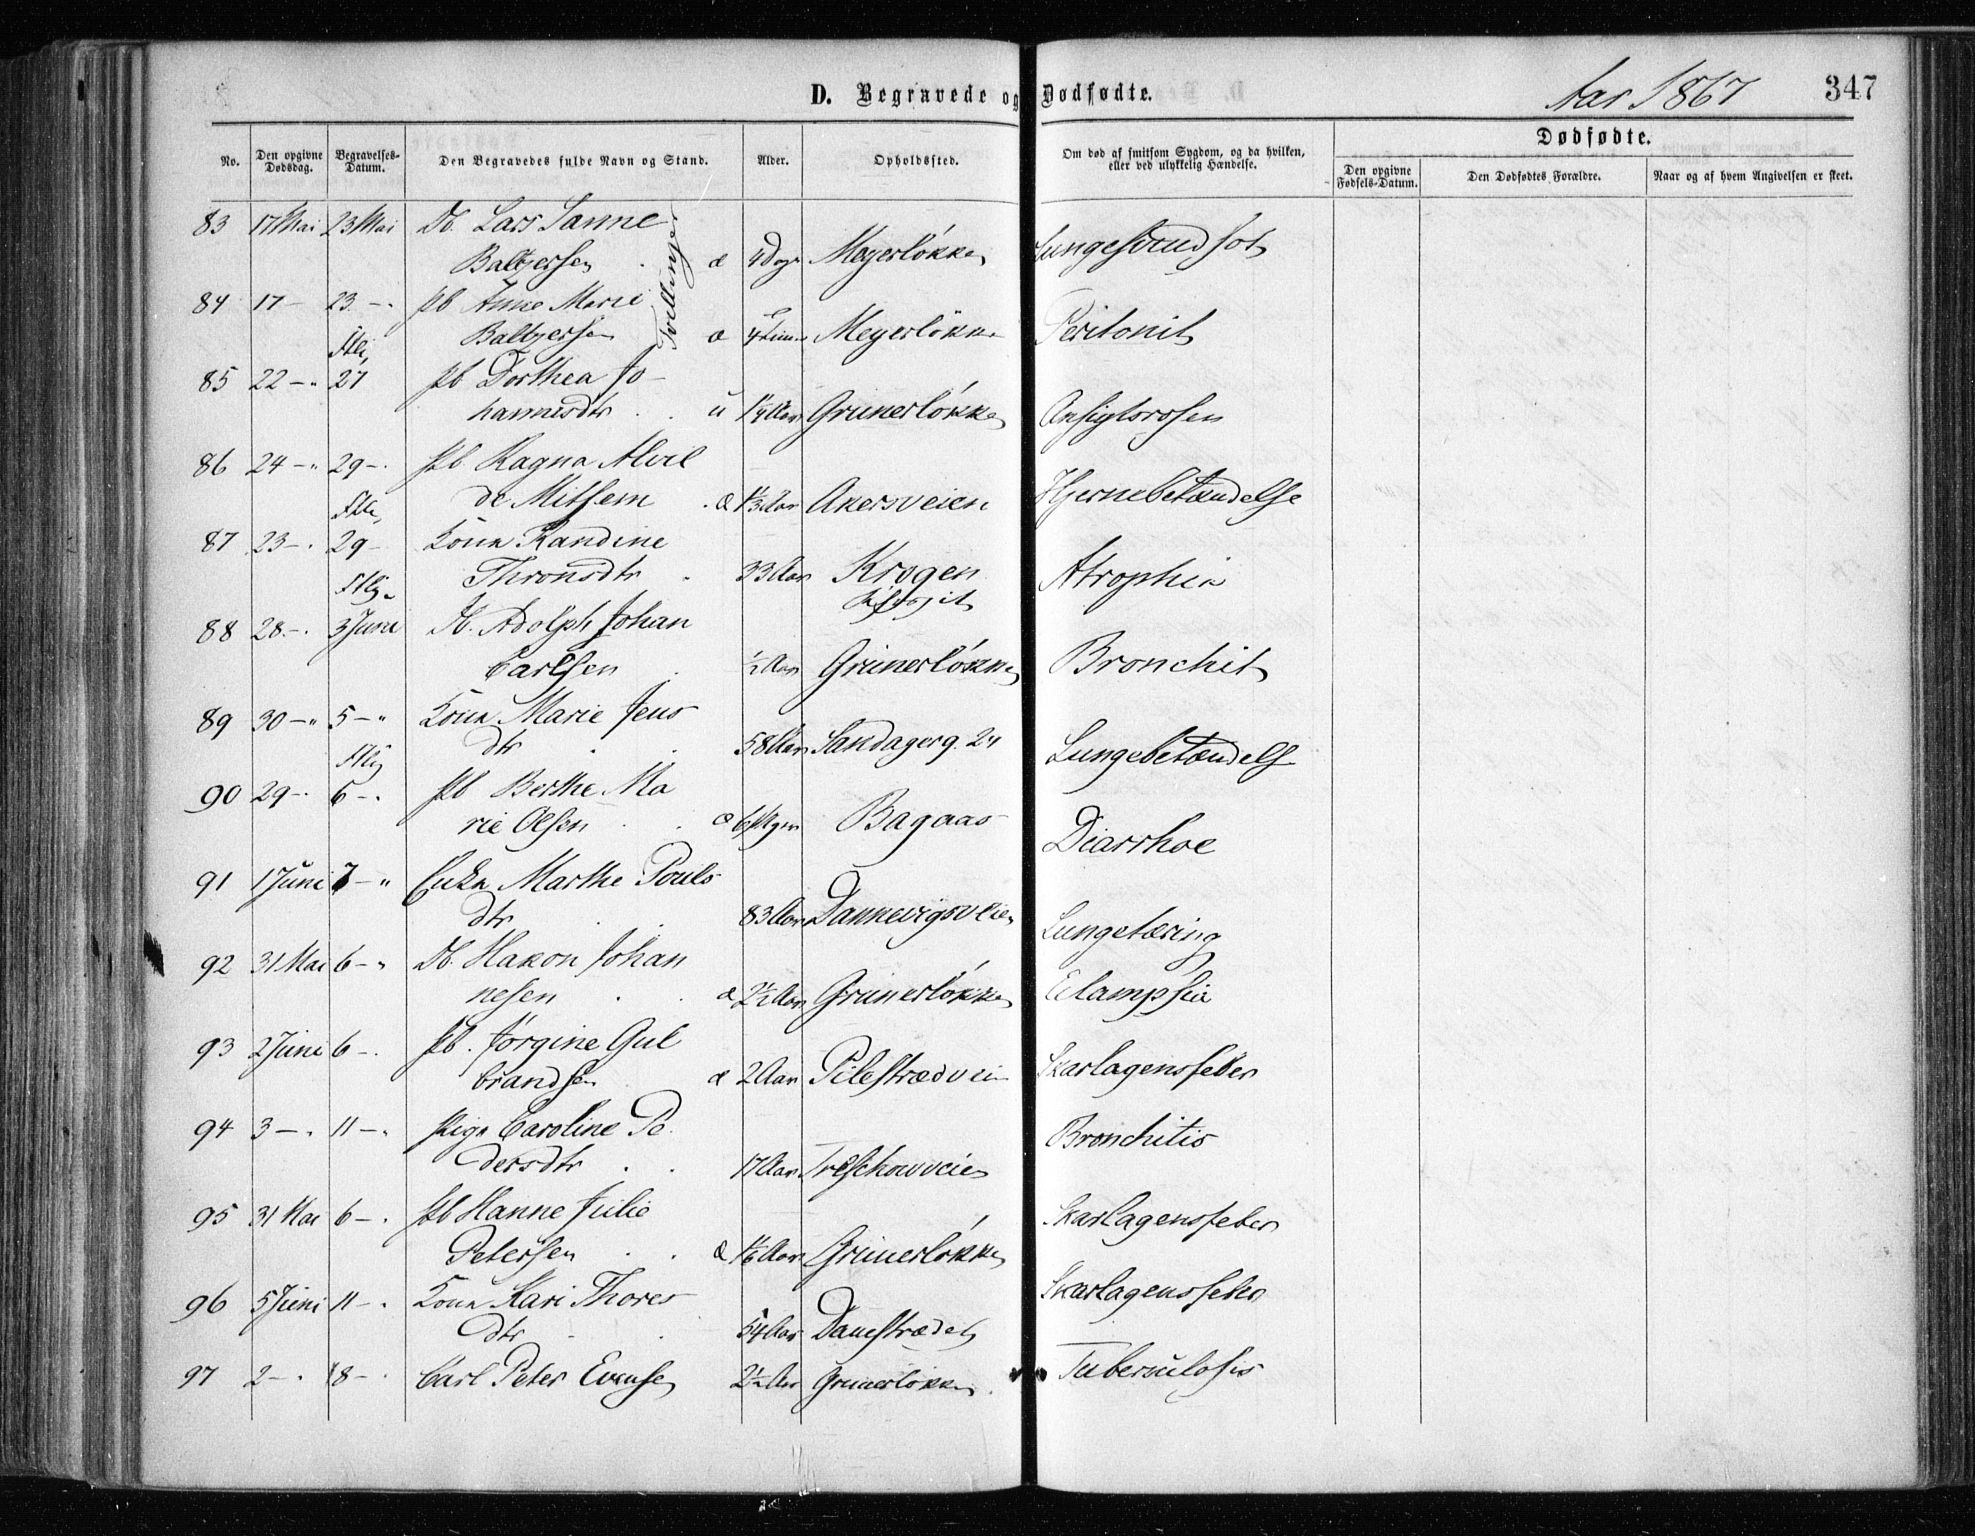 D. Begravede og Dødfødte.
Aar 1867
347
No.
Den opgivne Dødsdag.
Begravelses-Datum.
Den Begravedes fulde Navn og Stand.
Alder.
Opholdssted.
Om død af smitsom Sygdom, og da hvilken, eller ved ulykkelig Hændelse.
Dødfødte.
Den opgivne Fødsels-Datum.
Den Dødfødtes Forældre.
Naar og af hvem Angivelsen er skeet.
83 17 Mai 23 Mai Db. Lars Sanne
Baltzersen æ 4 Dage Meyerløkken
Tvillinger
84 17 - 23 - Pb Anne Marie
Baltzersen æ Meyerløkken Peritonit
85 22 - " 27 Pb Dorthea Jo-
hannesdtr. u 1¼ Aar Grunerløkken Ansigtsrosen
86 24 - " 29 - Pb. Ragna Alvil
de Mitsem æ 1⅓ Aar Akersveien Hjernebetændelse
87 23 - 29 - Kona Randine
Thronsdtr 33 Aar Krogen Atrophia
88 28 - 3 Juni Db. Adolph Johan
Carlsen ½ Aar Grünerløkken Bronchit
89 30 - " 5 - " Kona Marie Jens
dtr 58 Aar Sandagerg. 24 Lungebetændelse
90 29 - 6 - Pb Berthe Ma
rie Olsen Bagaas Diarrhoe
91 1 Juni 7 - " Enka Marthe Pouls
dtr 83 Aar Dannevigsveien Lungetæring
92 31 Mai 6 - " Db. Hakon Johan
nesen æ 2½ Aar Grünerløkken Eclampsia
93 2 Juni 6 - Pb. Jørgine Gul
brandsen æ 2 Aar Pilestrædvei Skarlagensfeber
94 3 - 11 - Pige Caroline Pe
dersdtr 17 Aar Treschowveien Bronchitis
95 31 Mai 6 - Pb Hanne Julie
Petersen æ 1⅙ Aar Grünerløkken Skarlagensfeber
96 5 Juni 11 - Kona Kari Thores
dtr 54 Aar Danestrædet Skarlagensfeber
97 2 - 8 - Carl Peter Evensen 2½ Aar Grunerløkken Tuberculosis